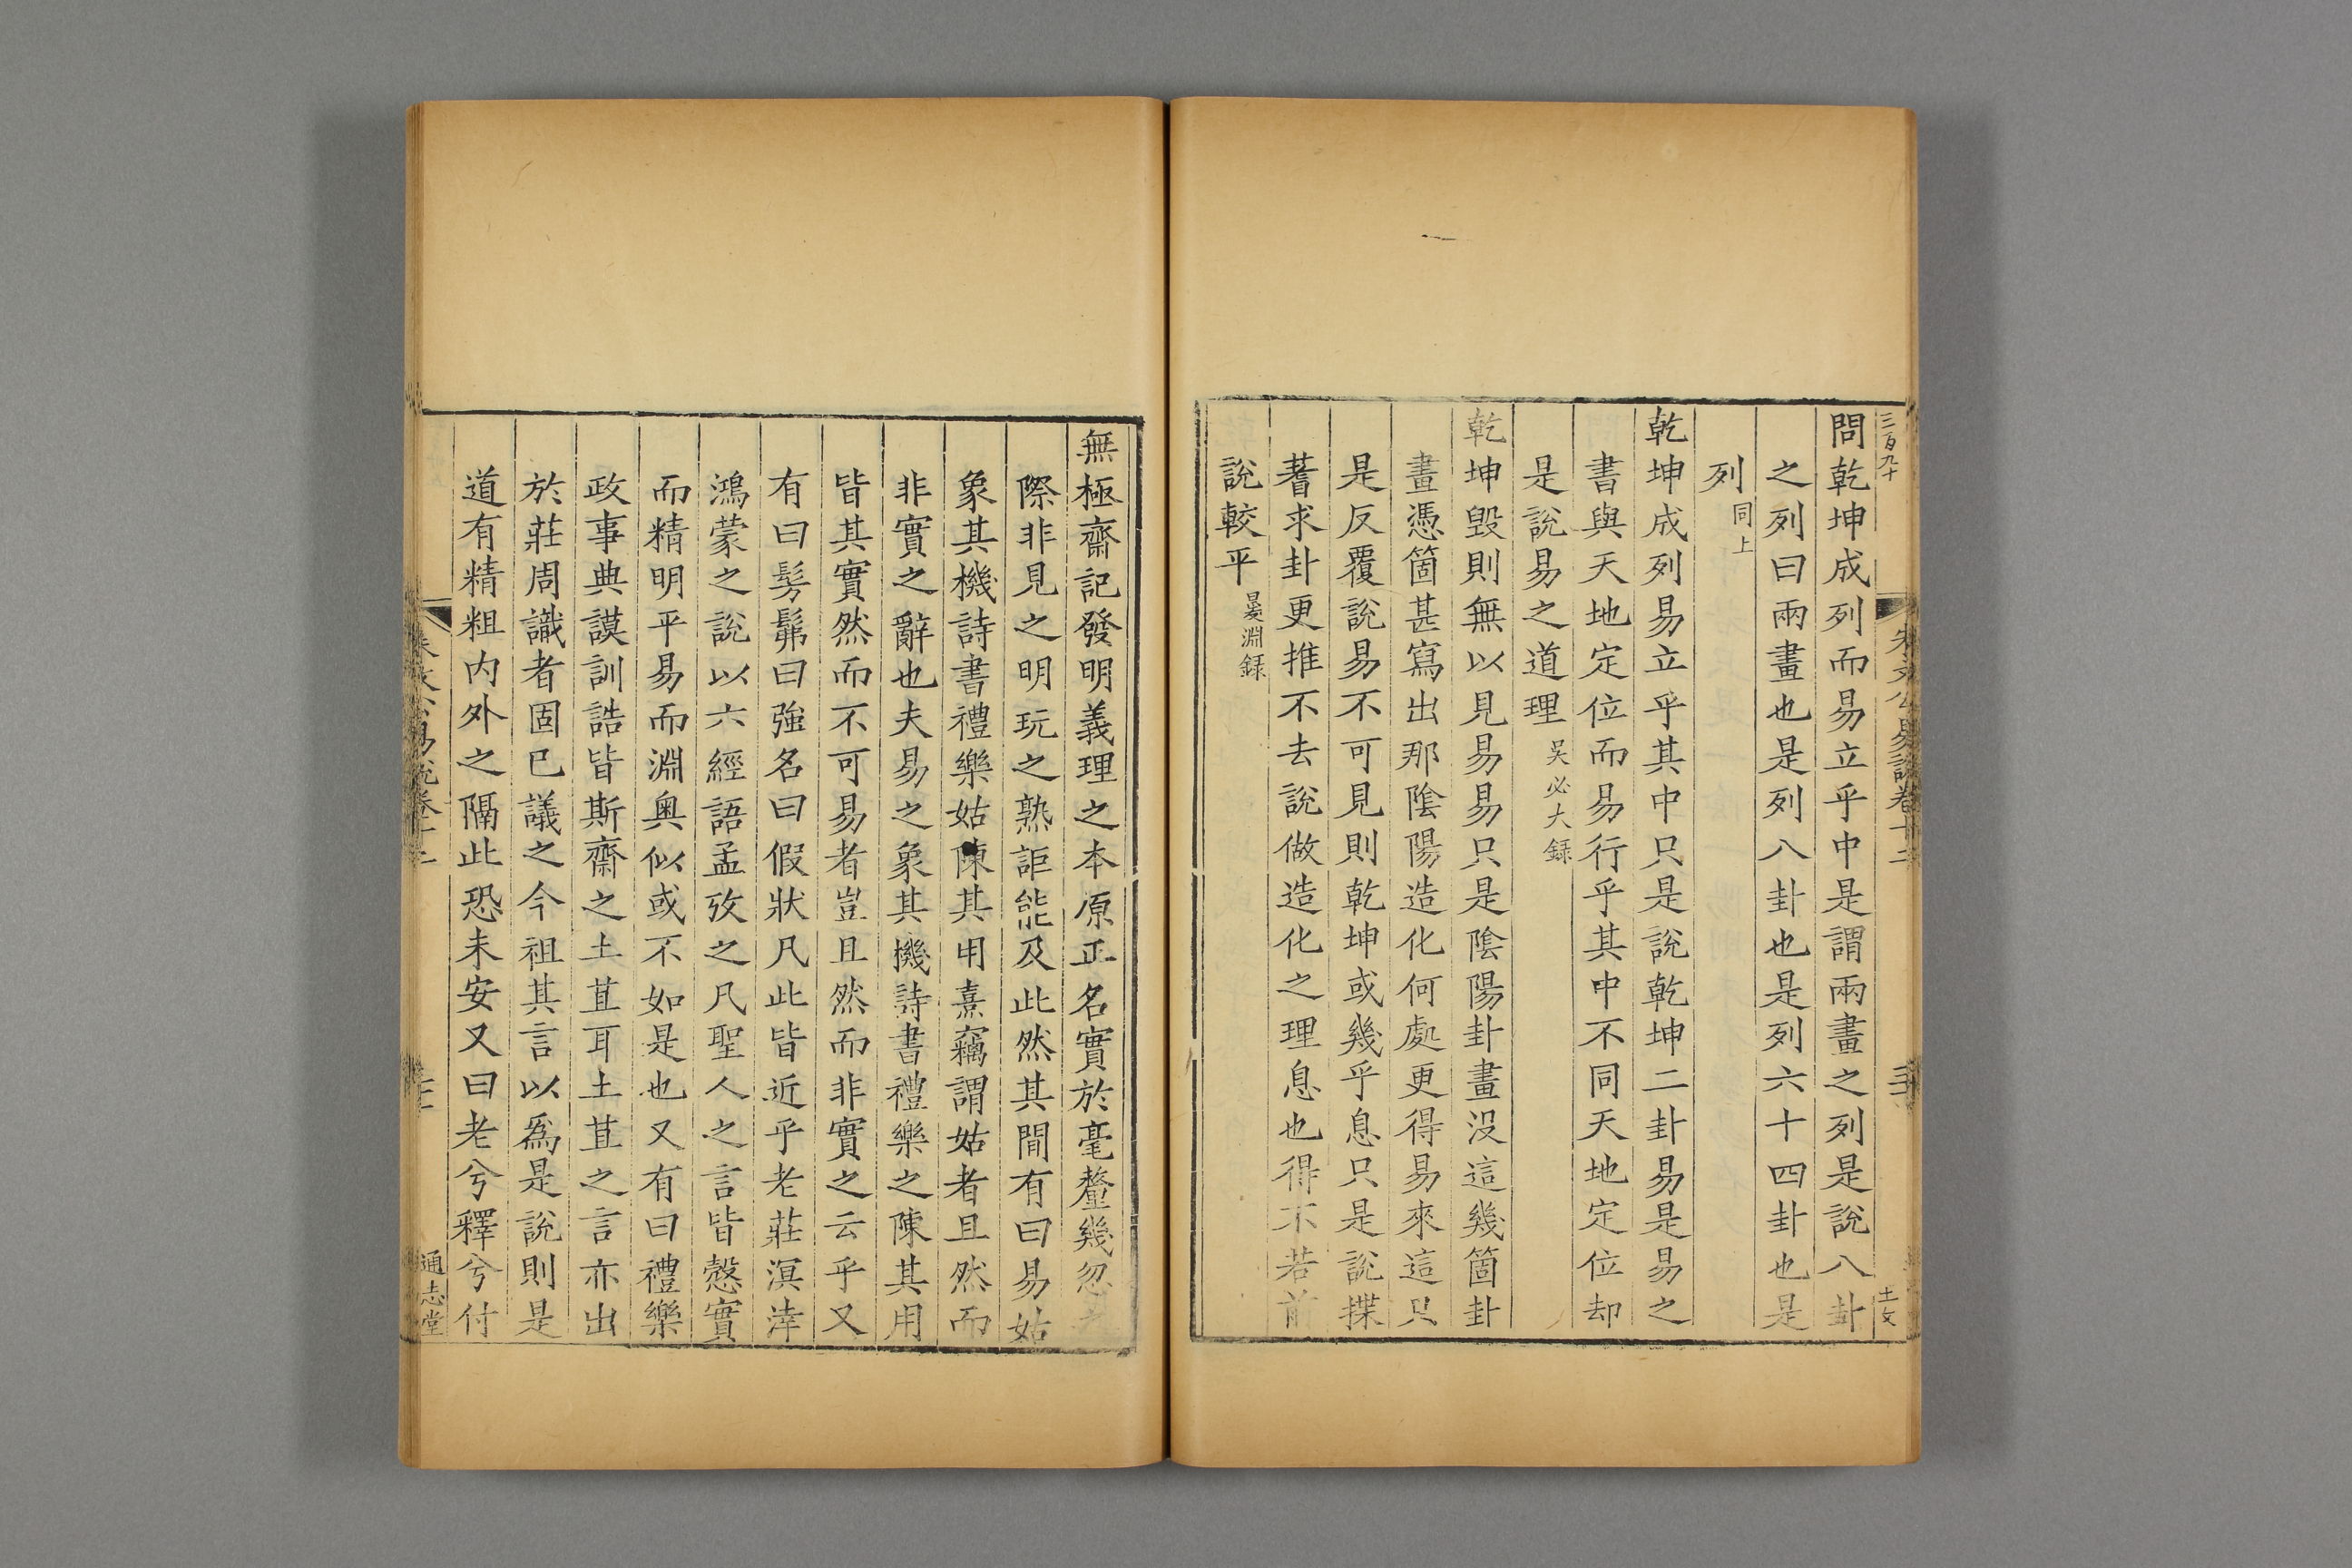 三百九十
問乾坤成列而易立乎中是謂兩畫之列是說八卦
之列曰兩畫也是列八卦也是列六十四卦也是
列同上
乾坤成列易立乎其中只是說乾坤二卦易是易之
書與天地定位而易行乎其中不同天地定位却
是說易之道理吳必大録
乾坤毀則無以見易易只是陰陽卦畫没這幾箇卦
畫憑箇甚寫出那陰陽造化何處更得易來這只
是反覆說易不可見則乾坤或幾乎息只是說揲
蓍求卦更推不去說做造化之理息也得不若前
說較平㬊淵録
無極齋記發明義理之本原正名實於毫釐幾忽之
際非見之明玩之熟詎能及此然其間有曰易姑
象其機詩書禮樂姑陳其用熹竊謂姑者且然而
非實之辭也夫易之象其機詩書禮樂之陳其用
皆其實然而不可易者豈且然而非實之云乎又
有曰髣髴曰強名曰假狀凡此皆近乎老莊溟涬
鴻蒙之說以六經語孟攷之凡聖人之言皆慤實
而精明平易而淵奥似或不如是也又有曰禮樂
政事典謨訓誥皆斯齋之土苴耳土苴之言亦出
於莊周識者固已議之今祖其言以爲是說則是
道有精粗内外之隔此恐未安又曰老兮釋兮付
朱文公易說卷十二
通志堂